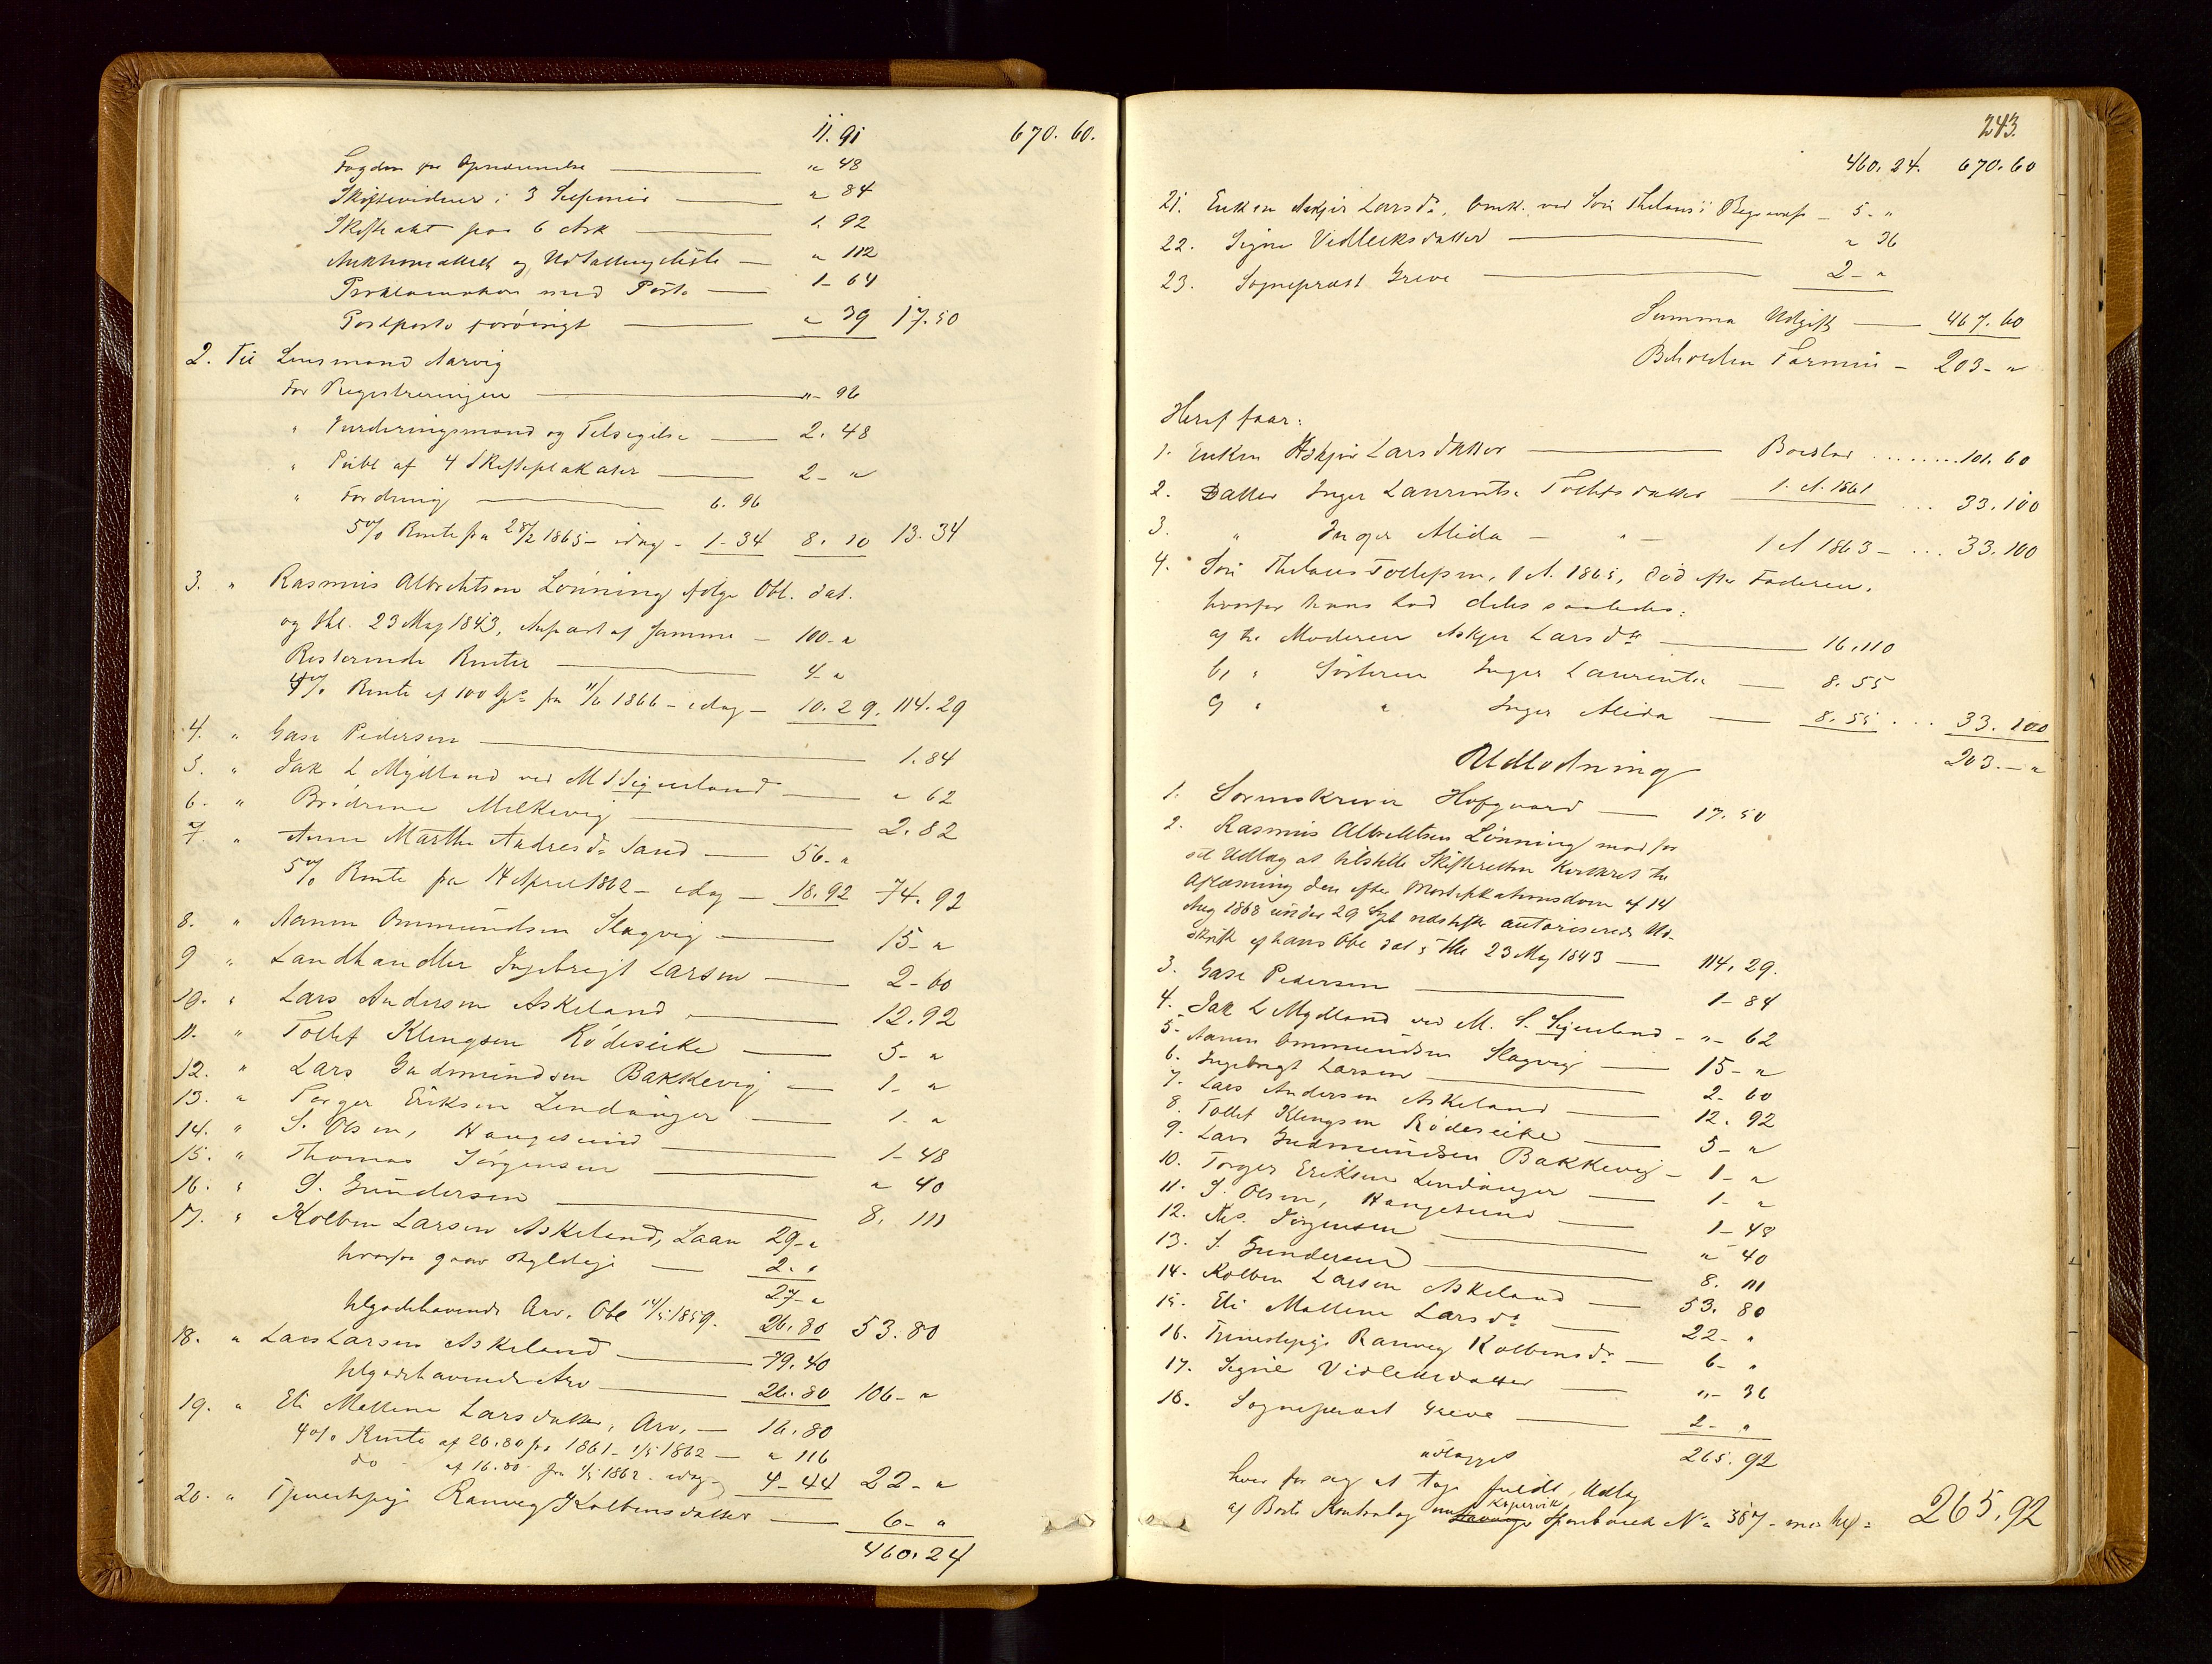 11. 91 670. 60.
Fogden for Opnævnelse — " 48
Skiftevidner i 3 Sessioner — " 84
Skifteakt paa 6 Ark — 1. 92
Auktionsattest og Udtællingsliste — " 112
Proklamation med Porto — 1- 64
Postporto forøvrigt — " 39 17. 50
2. Til Lensmand Aarvig
For Registreringen — "- 96
" Vurderingsmænd og Tilsigelse — 2. 48
" Publ af 4 Skifteplakater — 2- "
" Fordring — 6. 96
5% Rente fra 28/2 1865 - idag - 1-34 8. 10 13. 34
3. " Rasmus Albrektsen Lønning ifølge Obl. dat.
og thl. 23 May 1843, Anpart af Samme — 100- "
Resterende Renter — 4- "
4% Rente af 100 Spd fra 11/6 1866 - idag - 10. 29. 114. 29
4. " Gase Pedersen — 1. 84
5. " Jak L Mydland ved M S Sigveland — " 62
6. " Brødrene Melkevig — 2. 82
7. " Anne Marthe Andresdr Sand — 56- "
5% Rente fra 14 April 1862 - idag — 18. 92 74. 92
8. " Aanen Ommundsen Slagvig — 15- "
9 " Landhandler Ingebregt Larsen — 2- 60
10. " Lars Andersen Askeland — 12. 92
11. " Tollef Klengsen Rødeseike — 5- "
12. " Lars Gudmundsen Bakkevig — 1- "
13. " Torger Eriksen Lindanger — 1- "
14. " S. Olsen, Haugesund — 1- 48
15. " Thomas Jørgensen — " 40
16. " S. Gundersen — 8. 111
17. " Kolben Larsen Askeland, Laan 29- "
2. "
27- "
tilgodehavende Arv. Obl 14/5 1859. 26. 80 53. 80
18. " Lars Larsen Askeland — 79. 40
tilgodehavende Arv — 26. 80 106- "
19. " Eli Mallene Larsdatter, Arv, — 16. 80
4% Rente af 26. 80 fra 1861 - 1/5 1862 — " 116
do af 16. 80 fra 1/5 1862 - idag - 4- 44 22- "
20. " Tjenestepige Ranveg Kolbensdatter — 6- "
460. 24
243.
460. 24. 670. 60
21. Enken Askjer Larsdr, Omk. ved Søn Thelaus's Begravelse - 5- "
22. Signe Vidleiksdatter — " 36
23. Sogneprest Greve — 2- "
Summa Udgift — 467. 60
Beholden Formue - 203- "
Heraf faar:
1. Enken Askjer Larsdatter — Boeslod ........ 101. 60
2. Datter Inger Laurentse Tollefsdatter 1. A. 1861 ... 33. 100
3. " Inger Alida - " - 1 A 1863 - ... 33. 100
4. Søn Thelaus Tollefsen, 1 A. 1865, død efter Faderen,
hvorfor hans Lod deles saaledes:
a) til Moderen Askjer Larsdtr — 16. 110
b) " Søsteren Inger Laurentse — 8. 55
c) " " Inger Alida — 8. 55 ... 33. 100
203. - "
Udlodning
1. Sorenskriver Hofgaard — 17. 50
2. Rasmus Albrektsen Lønning mod for
sit Udlæg at tilstille Skifteretten Kvitteret til
Aflæsning den efter Mortifikationsdom af 14
Aug 1868 under 29 Spt næstefter autoriserede Ud-
skrift af hans Obl dat & thl 23 May 1843 — 114. 29.
3. Gase Pedersen — 1- 84
4. Jak L Mydland ved M. S. Sigveland - "- 62
5. Aanen Ommundsen Slagvig — 15- "
6. Ingebregt Larsen — 2- 60
7. Lars Andersen Askeland — 12. 92
8. Tollef Klengsen Rødeseike — 5- "
9. Lars Gudmundsen Bakkevig - 1- "
10. Torger Eriksen Lindanger — 1- "
11. S. Olsen, Haugesund — 1- 48
12. Ths. Jørgensen — " 40
13. S. Gundersen — 8. 111
14. Kolben Larsen Askeland — 53. 80
15. Eli Mallene Larsdr — 22- "
16. Tjenestepige Ranveg Kolbensdr — 6- "
17. Signe Vidleiksdatter — "- 36
18. Sogneprest Greve — 2- "
265. 92
udlægges
hver for sig at tage fuldt Udlæg
Kopervik
af Boets Sparebank No 387 - 265. 92